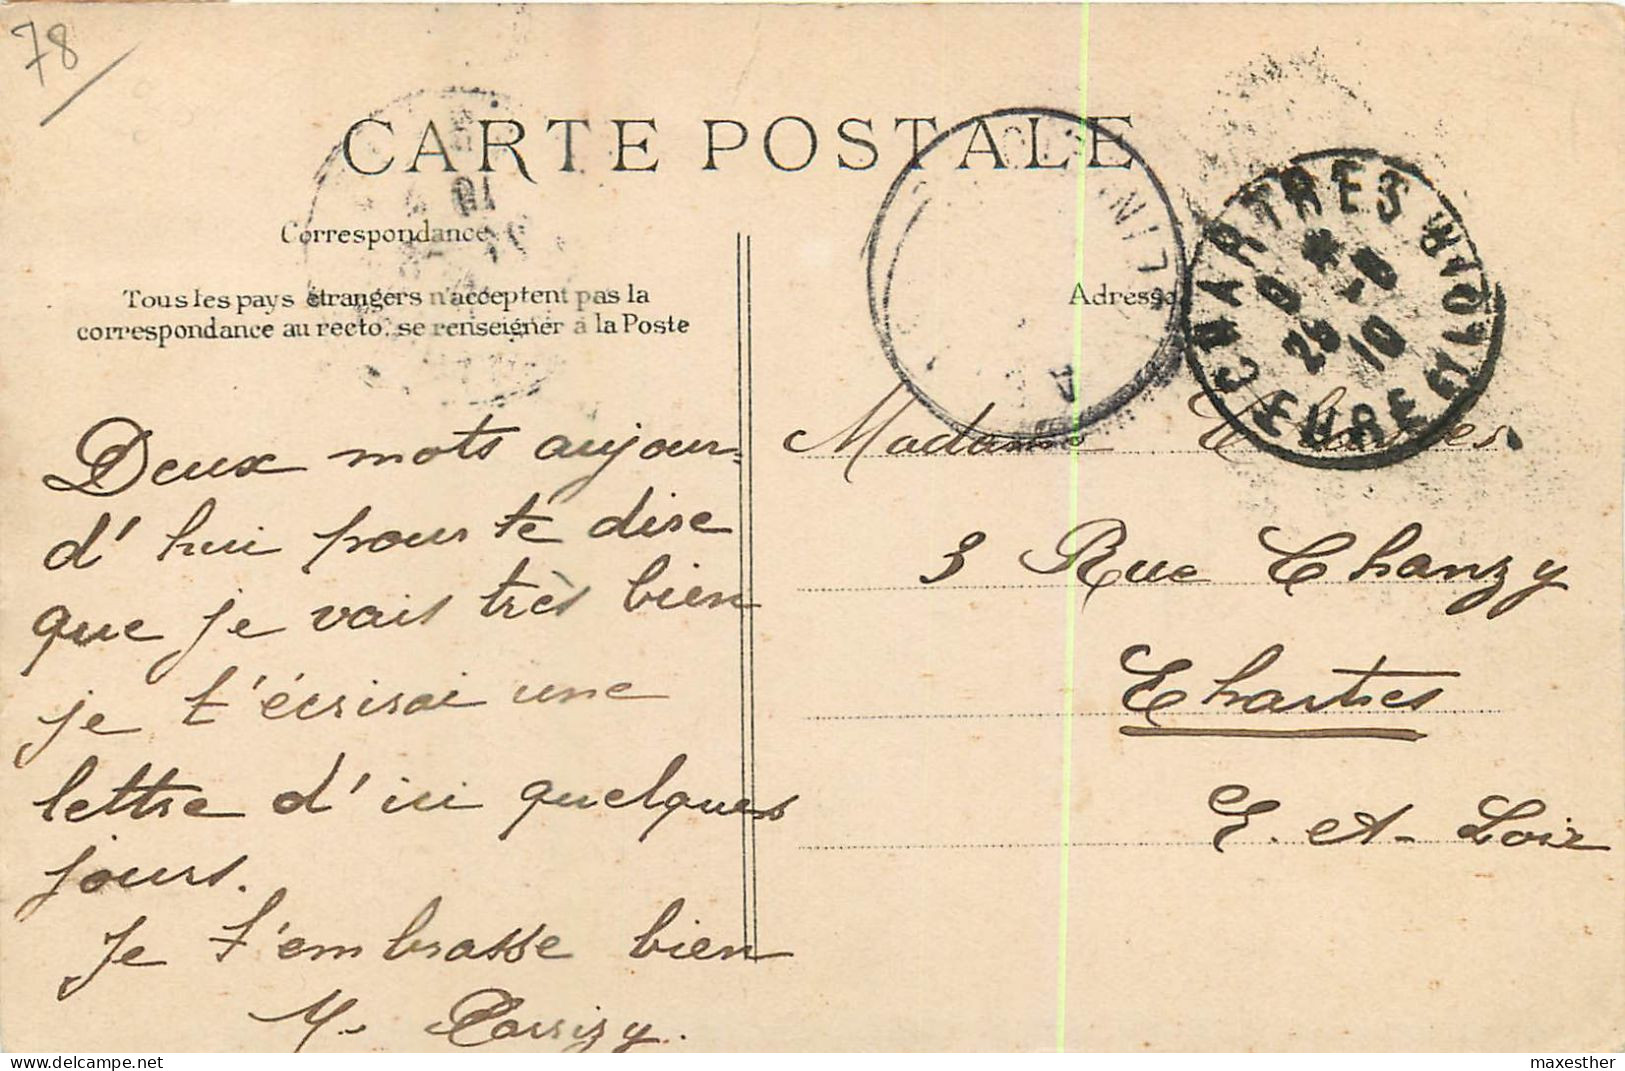 78
CARTE POSTALE
Correspondance
Tous les pays étrangers n'acceptent pas la
correspondance au recto, se renseigner à la Poste
Adresse
CHARTRES
28 -8
10
EURE
Deux mots aujour-
d'hui pour te dire
que je vais très bien
je t'écrirai une
lettre d'ici quelques
jours.
Je t'embrasse bien
M.
Madame
3 Rue Chanzy
Chartres
E. et-Loir
maxesther